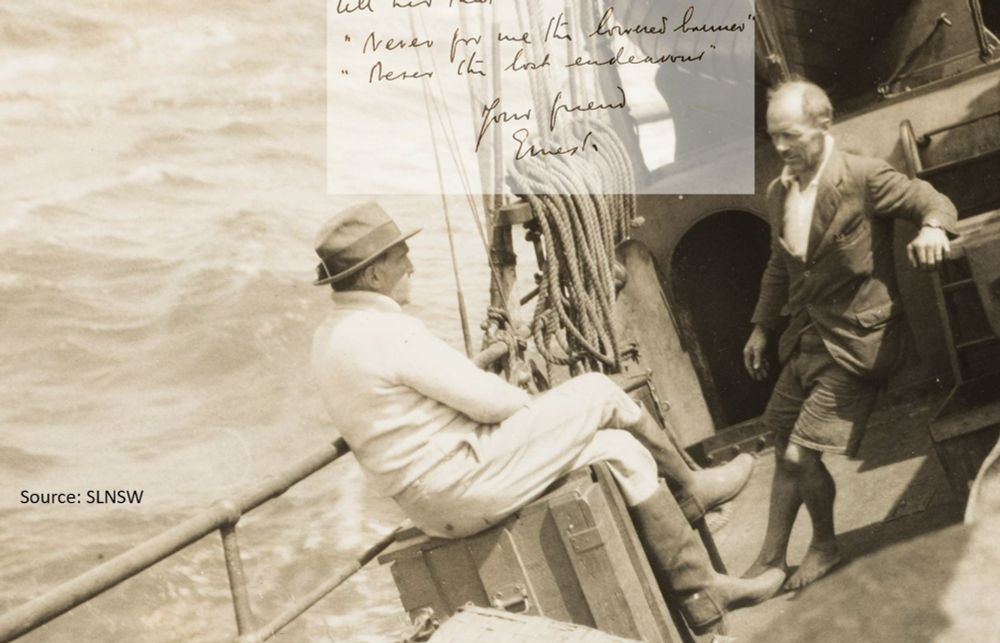 tell her that
"Never for me the lowered banner"
"Never the lost endeavour"
Your friend
Ernest.
Source: SLNSW